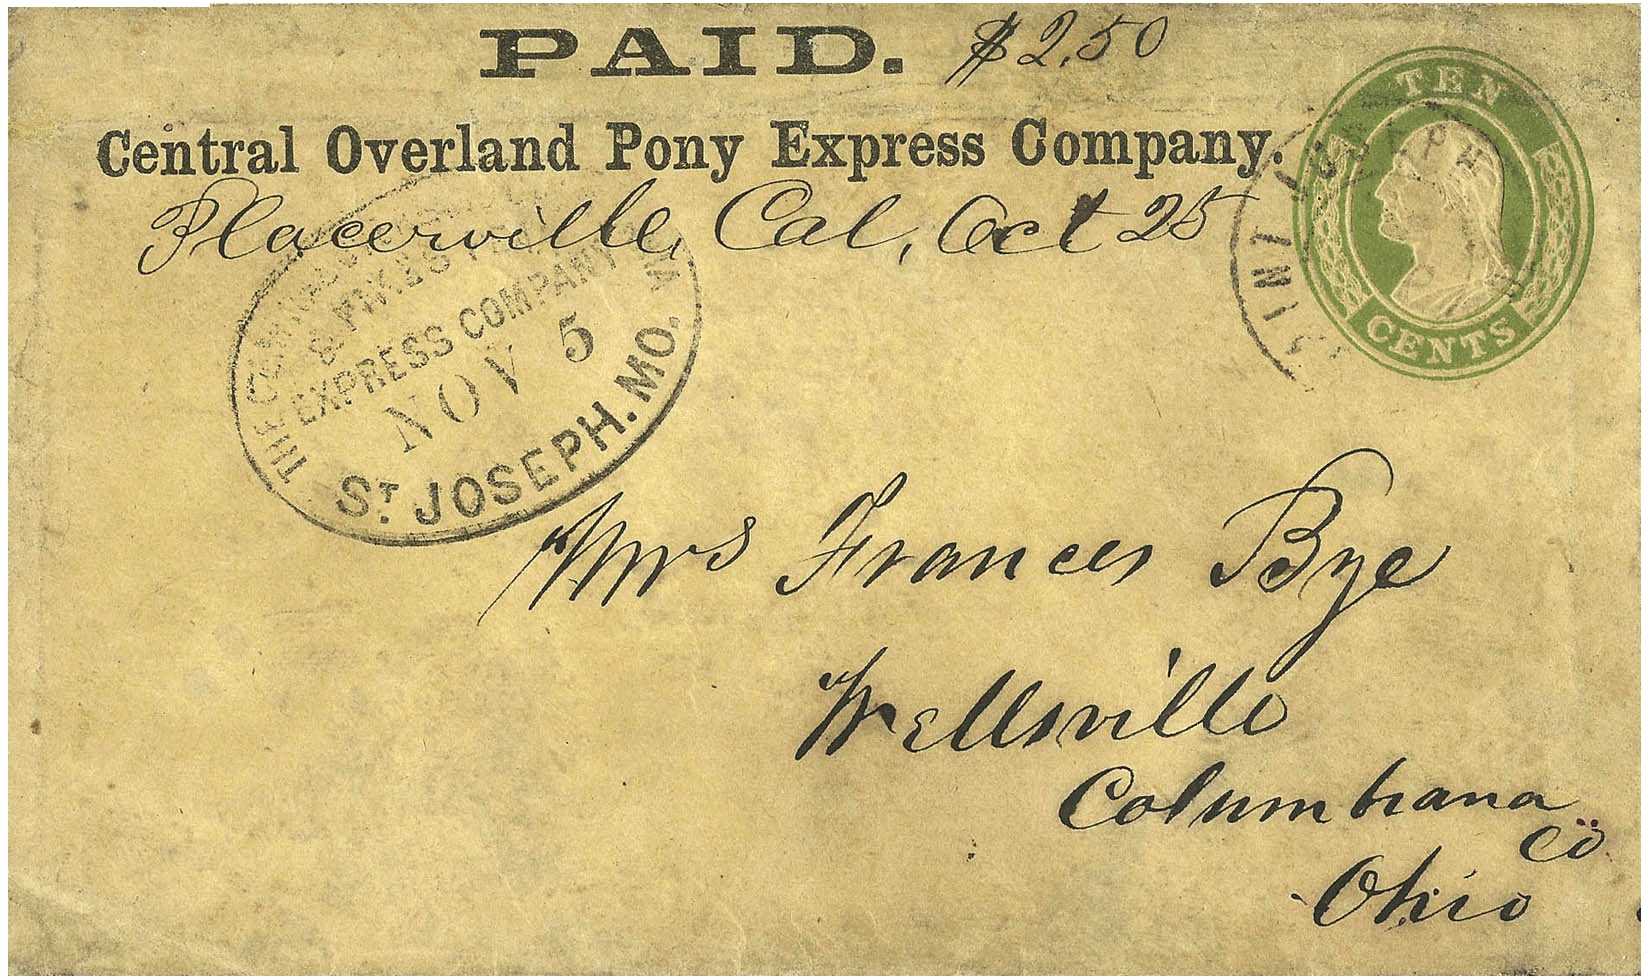 PAID. $2.50
Central Overland Pony Express Company.
Placerville, Cal, Oct 25
THE CENTRAL
& PIKES
EXPRESS COMPANY
NOV 5
ST. JOSEPH. MO.
TEN
CENTS
SAINT JOSEPH
Mrs Frances Bye
Wellsville
Columbiana
Co
Ohio